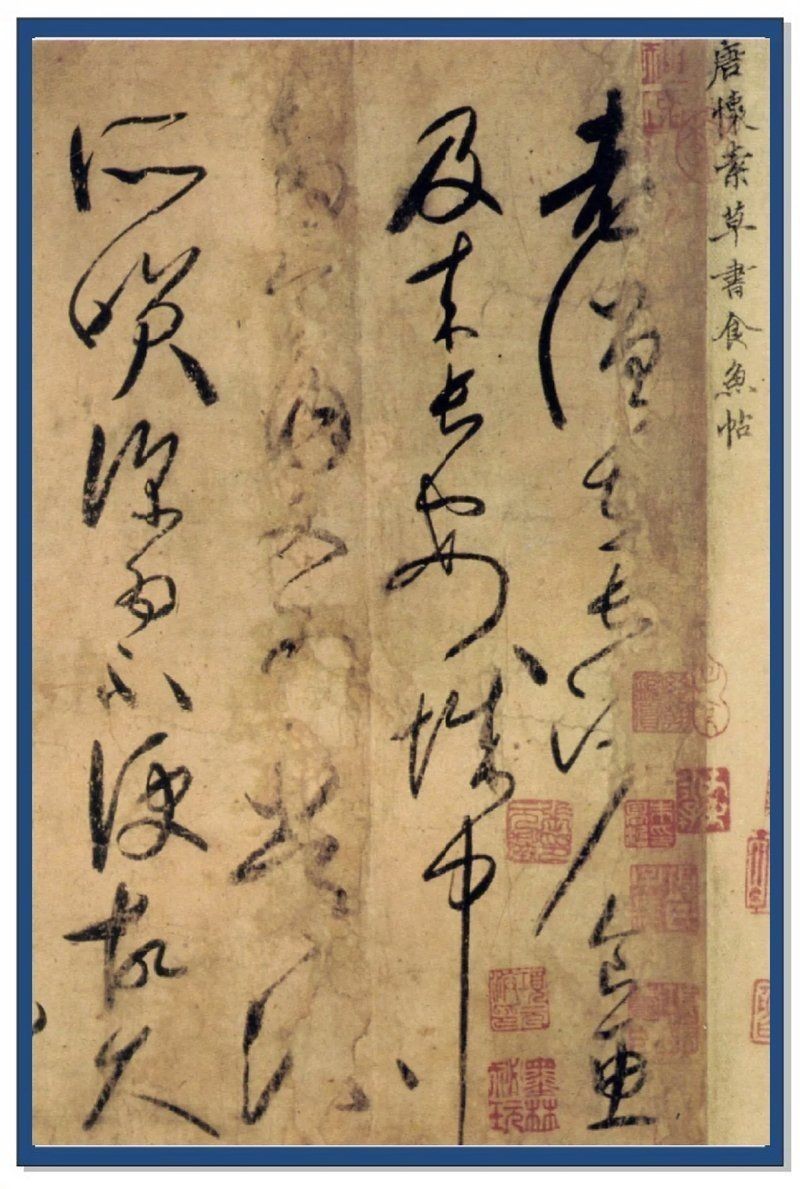 唐懷素草書食魚帖
老僧在長沙食魚
及來長安城中
多食肉又為常流
所笑深為不便故久
項元汴印
墨林祕玩